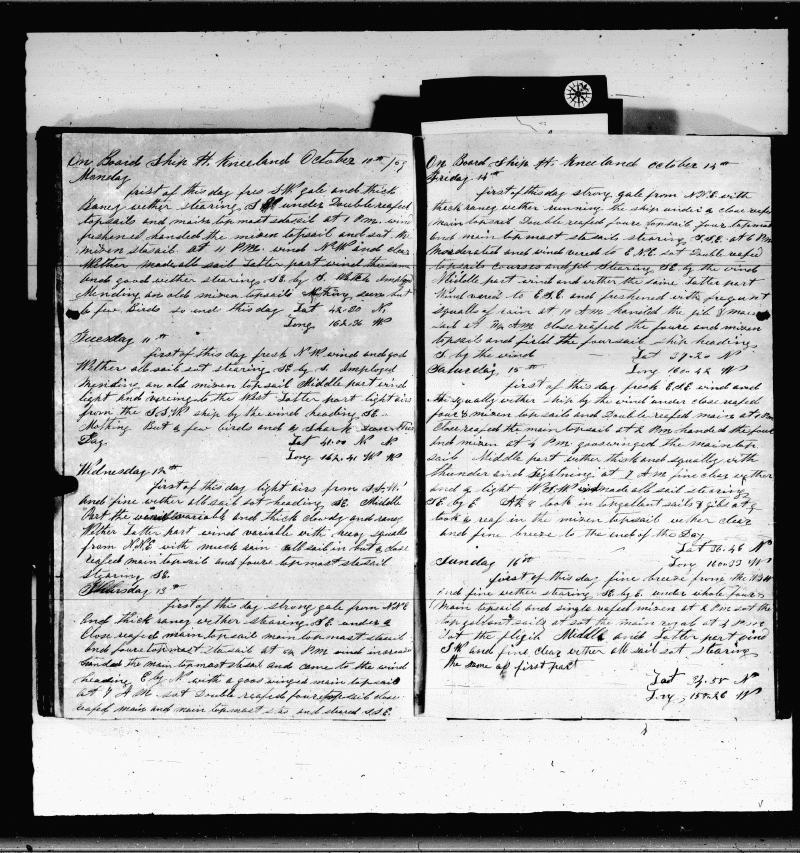 On Board Ship H. Kneeland October 10th /59
Monday
first of this day fres S.W gale and thick
raney wether stearing S under Double reafed
topsails and main topmost staisail at 1 P.M. wind
freshened handed the mizen topsail and sat the
mizen staisail at 11 P.M. wind N.W and clear
Wether made all sail Latter part wind the same
and good wether stearing SE by S Imployed
Mending an old mizen topsails Nothing seen but
a few Birds so ends this day Lat 42-20 N
Long 162.36 W
Tuesday 11th
first of this day fresh N.W wind and good
Wether all sail sat stearing SE by S. Imployed
Mending an old mizen topsail Middle part wind
light and vereing to the West Latter part light airs
from the S.S.W ship by the wind heading SE
Nothing But a few birds and a Shark seen this
Day. Lat 41.00 N N
Long 162.41 W W
Wednesday 12th
first of this day light airs from S.S.W
and fine wether all sail sat heading SE. Middle
Part the wind variable and thick clowdy and raney
Wether Latter part wind variable with heavy squalls
from N.N.E with much rain all sail in but a close
reafed main topsail and foure topmost staisail
stearing SE.
Thursday 13th
first of this day strong gale from N.N.E
and thick raney wether stearing SE under a
Close reafed main topsail main topmost staisail
and foure topmost staisail at P.M wind increased
handed the main topmost staisail and came to the wind
heading E by N. with a goos winged main topsail
at 7 A.M. sat Double reafed foure topsail close
reafed main and main topmost stais. and steared S.S.E.
On Board Ship H. Kneeland october 14th
Friday. 14th
first of this day strong gale from N.N.E with
thick raney wether running the ship under a close reafed
main topsail Double reafed foure topsail foure topmost
and main topmost staisails stearing S.S.E. at 6 P.M
Moderated and wind vered to E.N.E sat Double reafed
topsails courses and jib Stearing SE by the wind
Middle part wind and wether the same Latter part
Wind vered to E.S.E and freshened with frequent
squalls of rain at 10 A.M handed the jib & main
sail at A.M close reafed the foure and mizen
topsail and firled the foursail ship heading
S. by the wind Lat 39.20 N
Saturday, 15th Long 160.42 W
first of this day fresh E.S.E wind and
squally wether ship by the wind under close reafed
four & mizen topsails and Double reafed main at 1 P.M
Close reafed the main topsail at 2 P.M handed the foure
and mizen at 4 P.M gooswinged the main top
sail Middle part wether thick and squally with
thunder and Lightning at 7 A.M fine clear wether
and a light W.S.W wind made all sail stearing
SE by E At 8 took in topgellent sails & gibs at 9
took a reaf in the mizen topsail wether clear
and fine breeze to the end of the Day
Lat 36.46 N
Sunday 16th Long 160.33 W
first of this day fine breeze from the W.S.W
and fine wether stearing SE by E. under whole foure &
Main topsails and single reafed mizen at 2 P.M sat the
top gellent sails at sat the main royal at 4 P.M
Sat the fligib Middle and Latter part wind
S.W and fine clear wether all sail sat stearing
the same as first part
Lat 34.55 N
Long, 158.26 W